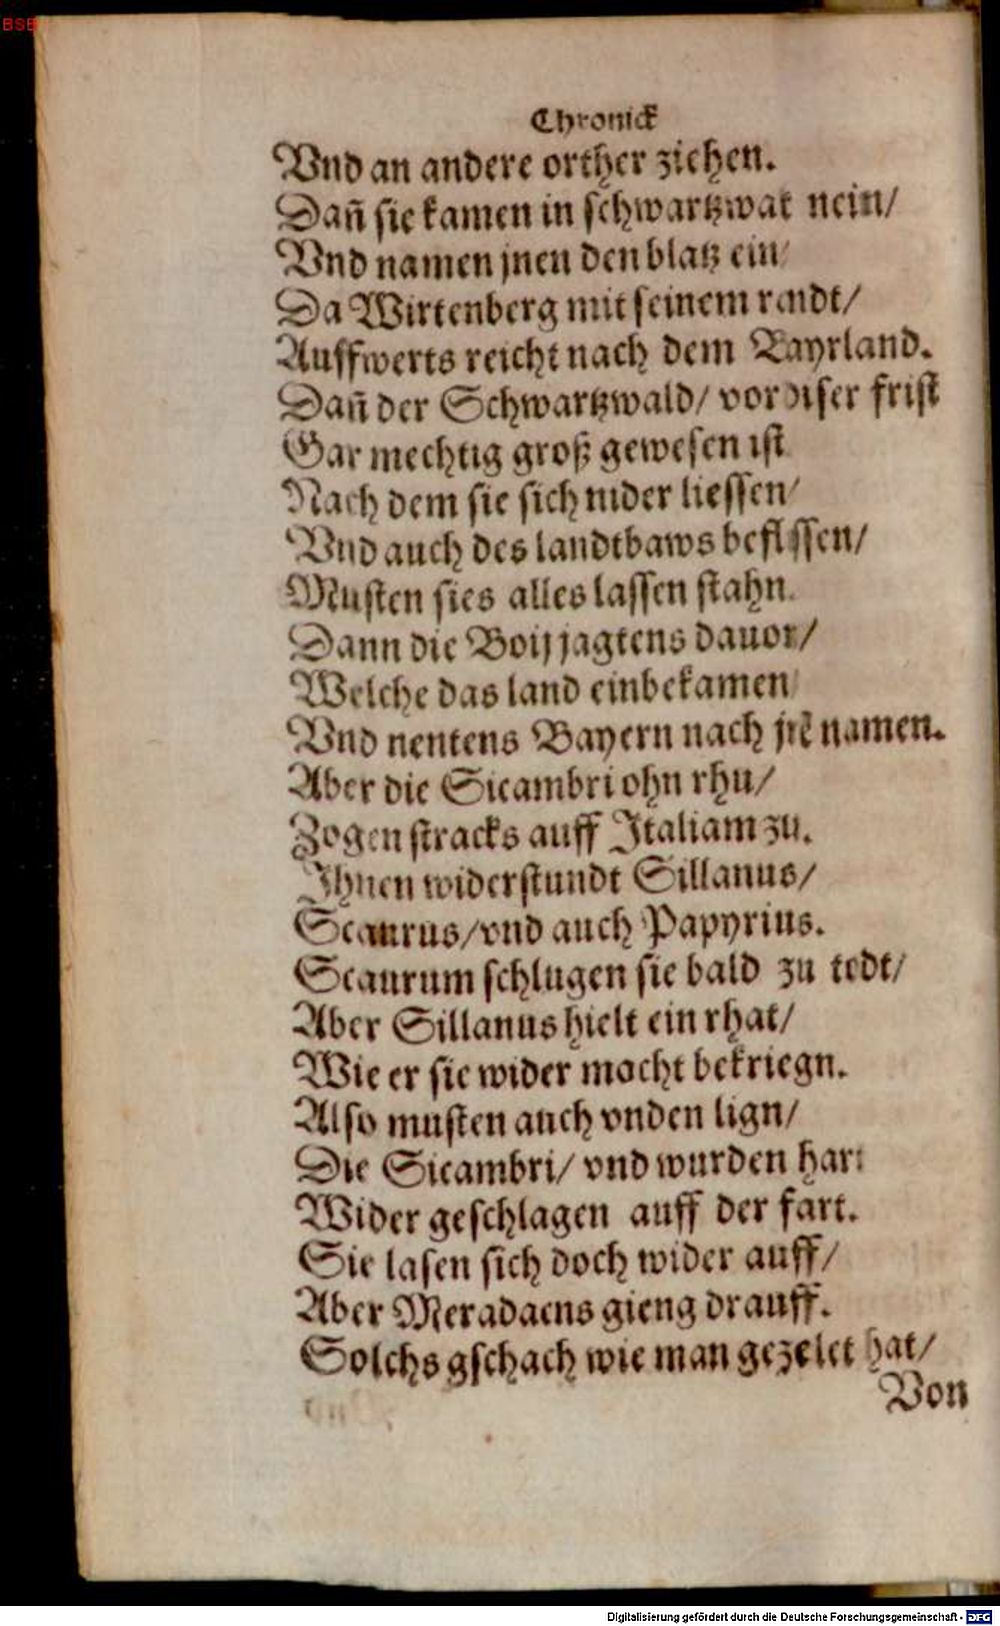 BSB
Chronick
Vnd an andere orther ziehen.
Dañ sie kamen in schwartzwat nein/
Vnd namen jnen den blatz ein/
Da Wirtenberg mit seinem randt/
Auffwerts reicht nach dem Bayrland.
Dañ der Schwartzwald/ vor diser frist
Gar mechtig groß gewesen ist
Nach dem sie sich nider liessen/
Vnd auch des landtbaws beflissen/
Musten sies alles lassen stahn.
Dann die Boij jagtens dauor/
Welche das land einbekamen
Vnd nentens Bayern nach jrẽ namen.
Aber die Sicambri ohn rhu/
Zogen stracks auff Italiam zu.
Ihnen widerstundt Sillanus/
Scaurus/ vnd auch Papyrius.
Scaurum schlugen sie bald zu todt/
Aber Sillanus hielt ein rhat/
Wie er sie wider mocht bekriegn.
Also musten auch vnden lign/
Die Sicambri/ vnd wurden hart
Wider geschlagen auff der fart.
Sie lasen sich doch wider auff/
Aber Meradacns gieng drauff.
Solchs gschach wie man gezelet hat/
Von
Digitalisierung gefördert durch die Deutsche Forschungsgemeinschaft - DFG